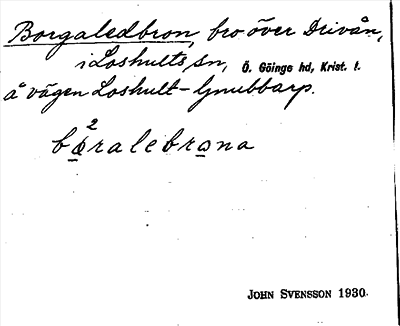 Borgaledbron, bro över Drivån,
i Loshults sn, Ö. Göinge hd, Krist. l.
å vägen Loshult-Gnubbarp.
bo²ralebrɷna
JOHN SVENSSON 1930.